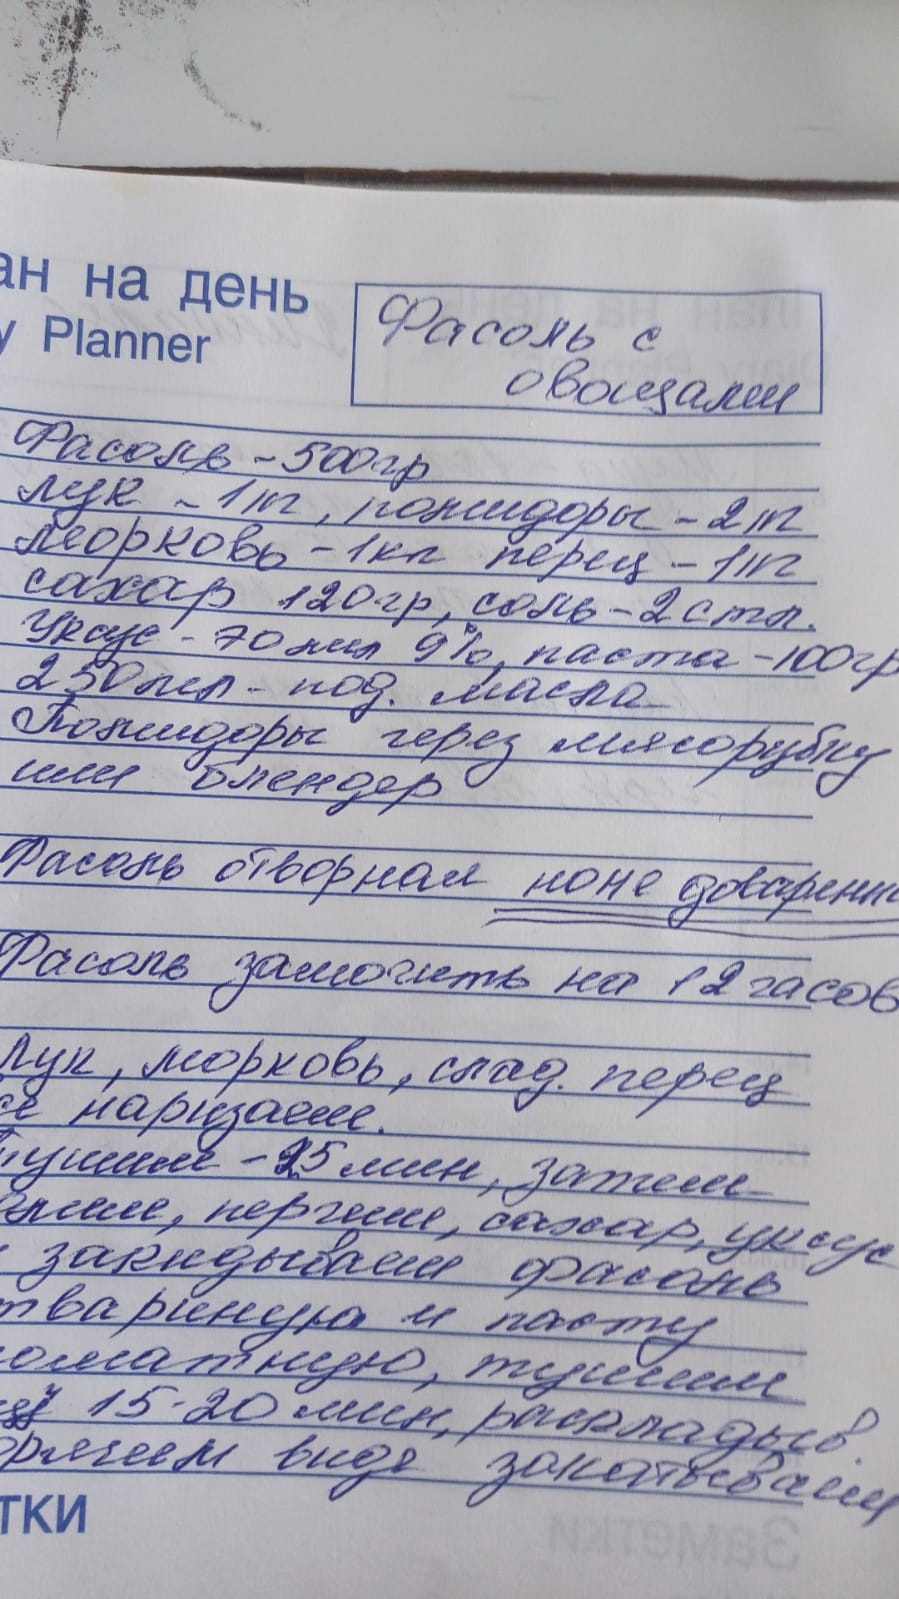 ан на день
y Planner
Фасоль с
овощами
Фасоль - 500гр
лук - 1шт, помидоры - 2шт
морковь - 1кг перец - 1шт
сахар 120гр, соль - 2 стл.
Уксус - 70мл 9%, паста - 100гр
250мл - под. масла
Помидоры через мясорубку
или блендер
Фасоль отворная но не доваренна
Фасоль замочить на 12 часов
Лук, морковь, слад. перец
се наризаем.
Тушим - 25 мин, затем
олим, перчим, сахар, уксус
закидываем фасоль
твариную и пасту
оматную, тушим
15-20 мин, раскладыв.
орячем виде закатываем
тки